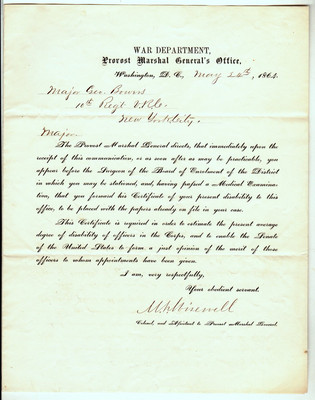 WAR DEPARTMENT,
Provost Marshal General's Office,
Washington, D. C., May 24th, 1864.
Major Geo. Bowers
10th Regt V.R.C.
New York City.
Major
The Provost Marshal General directs, that immediately upon the
receipt of this communication, or as soon after as may be practicable, you
appear before the Surgeon of the Board of Enrolment of the District
in which you may be stationed, and, having passed a Medical Examina-
tion, that you forward his Certificate of your present disability to this
office, to be placed with the papers already on file in your case.
This Certificate is required in order to estimate the present average
degree of disability of officers in the Corps, and to enable the Senate
of the United States to form a just opinion of the merit of those
officers to whom appointments have been given.
I am, very respectfully,
Your obedient servant,
M. N. Wisewell
Colonel, and Assistant to Provost Marshal General.